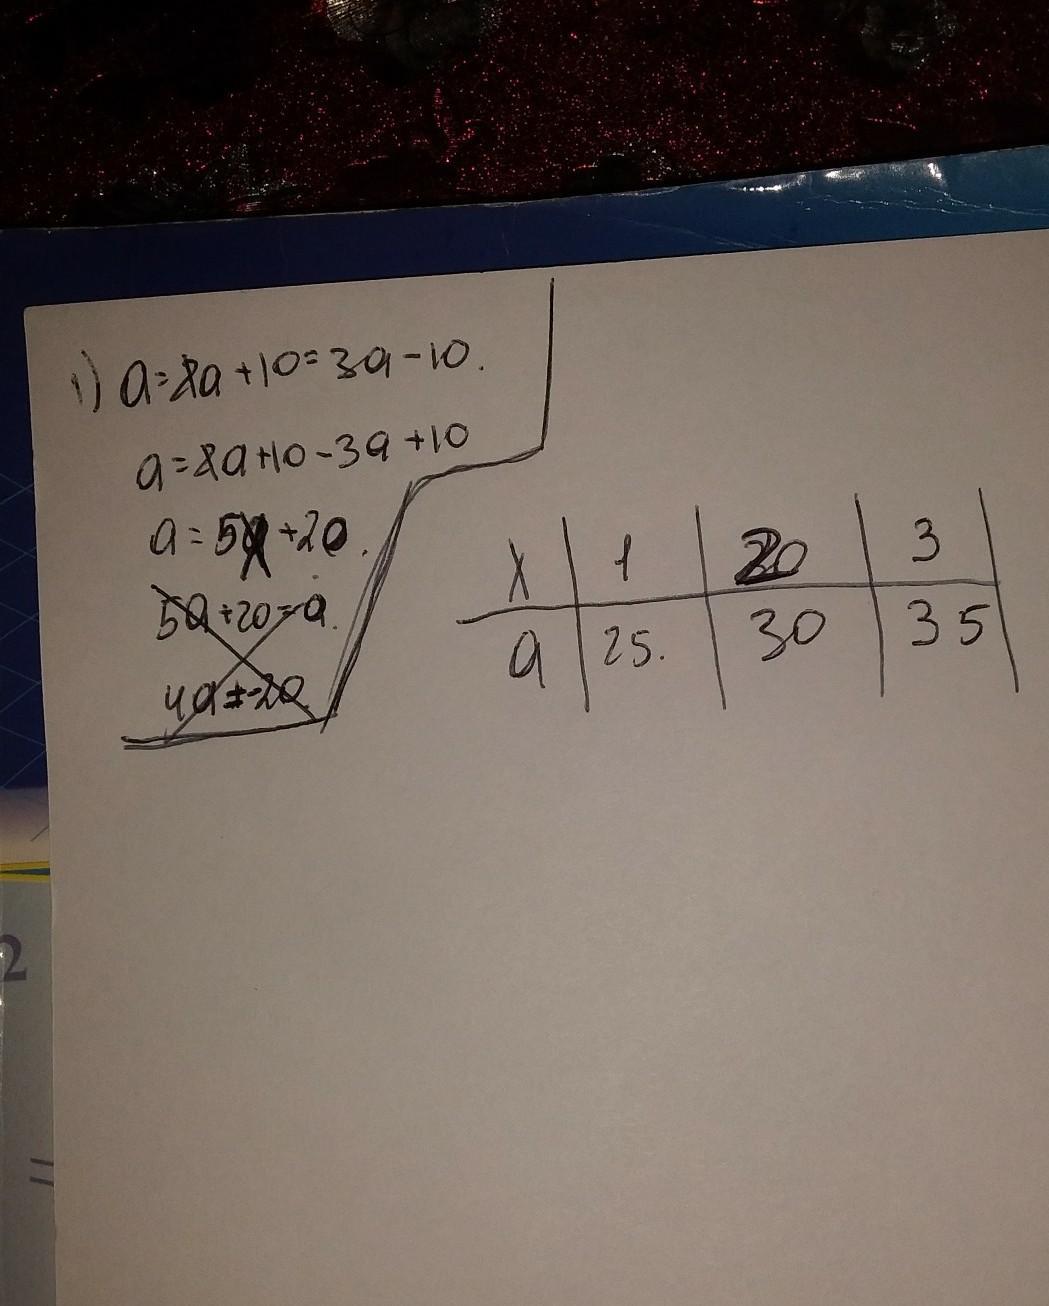 1) a=8a+10=3a-10.
a=8a+10-3a+10
a=5x+20.
5a+20=a.
4a=-20
x | 1 | 20 | 3
a | 25. | 30 | 35
2